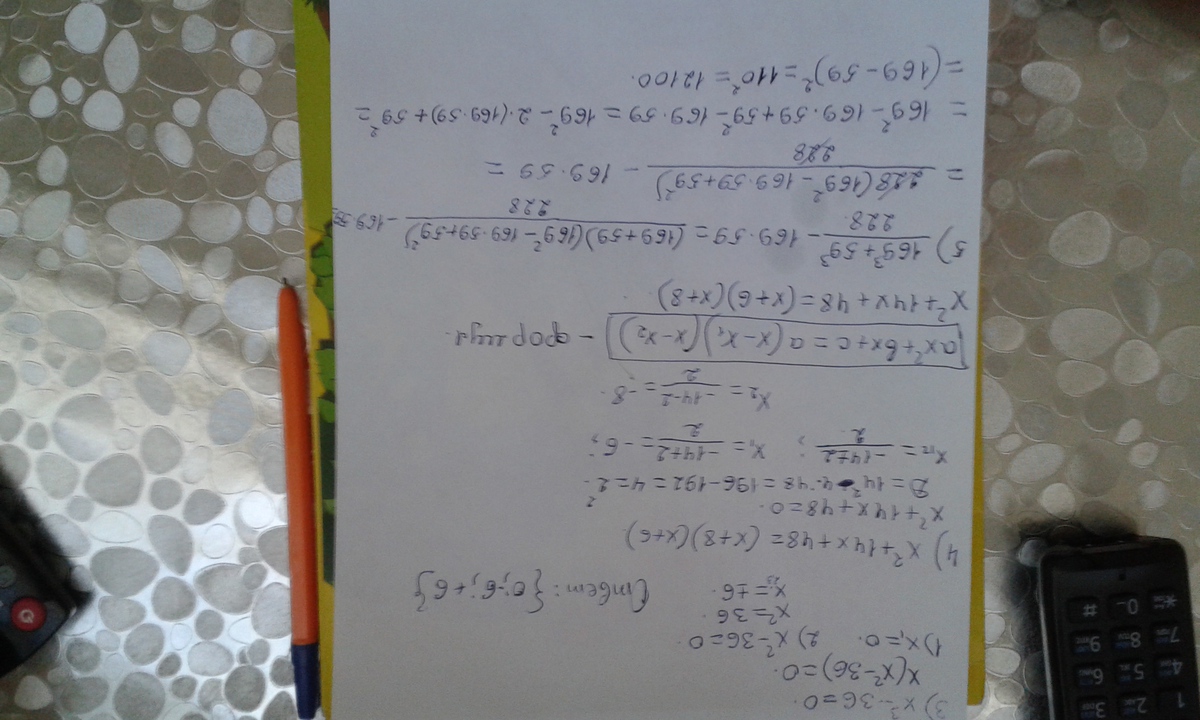 3) x³-36=0
x(x²-36)=0.
1) x₁=0. 2) x²-36=0.
x²=36.
x₂,₃=±6. Ответ: {0; -6; +6}
4) x²+14x+48=(x+8)(x+6)
x²+14x+48=0.
D=14²-4·48=196-192=4=2².
x₁,₂=(-14±2)/2; x₁=(-14+2)/2=-6;
x₂=(-14-2)/2=-8.
ax²+bx+c=a(x-x₁)(x-x₂) - формул.
x²+14x+48=(x+6)(x+8).
5) (169³+59³)/228-169·59=((169+59)(169²-169·59+59²))/228-169·59
=(228(169²-169·59+59²))/228-169·59=
=169²-169·59+59²-169·59=169²-2·(169·59)+59²=
=(169-59)²=110²=12100.
1 2 ABC 3 DEF
4 5 6
7 8 9
* 0 #